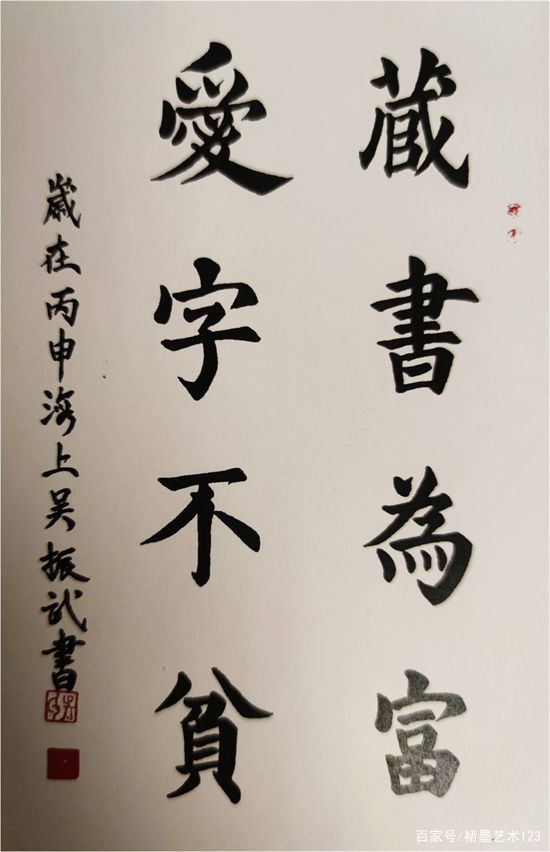 藏書為富
愛字不貧
歲在丙申海上吴振武書
百家号/楮墨艺术123